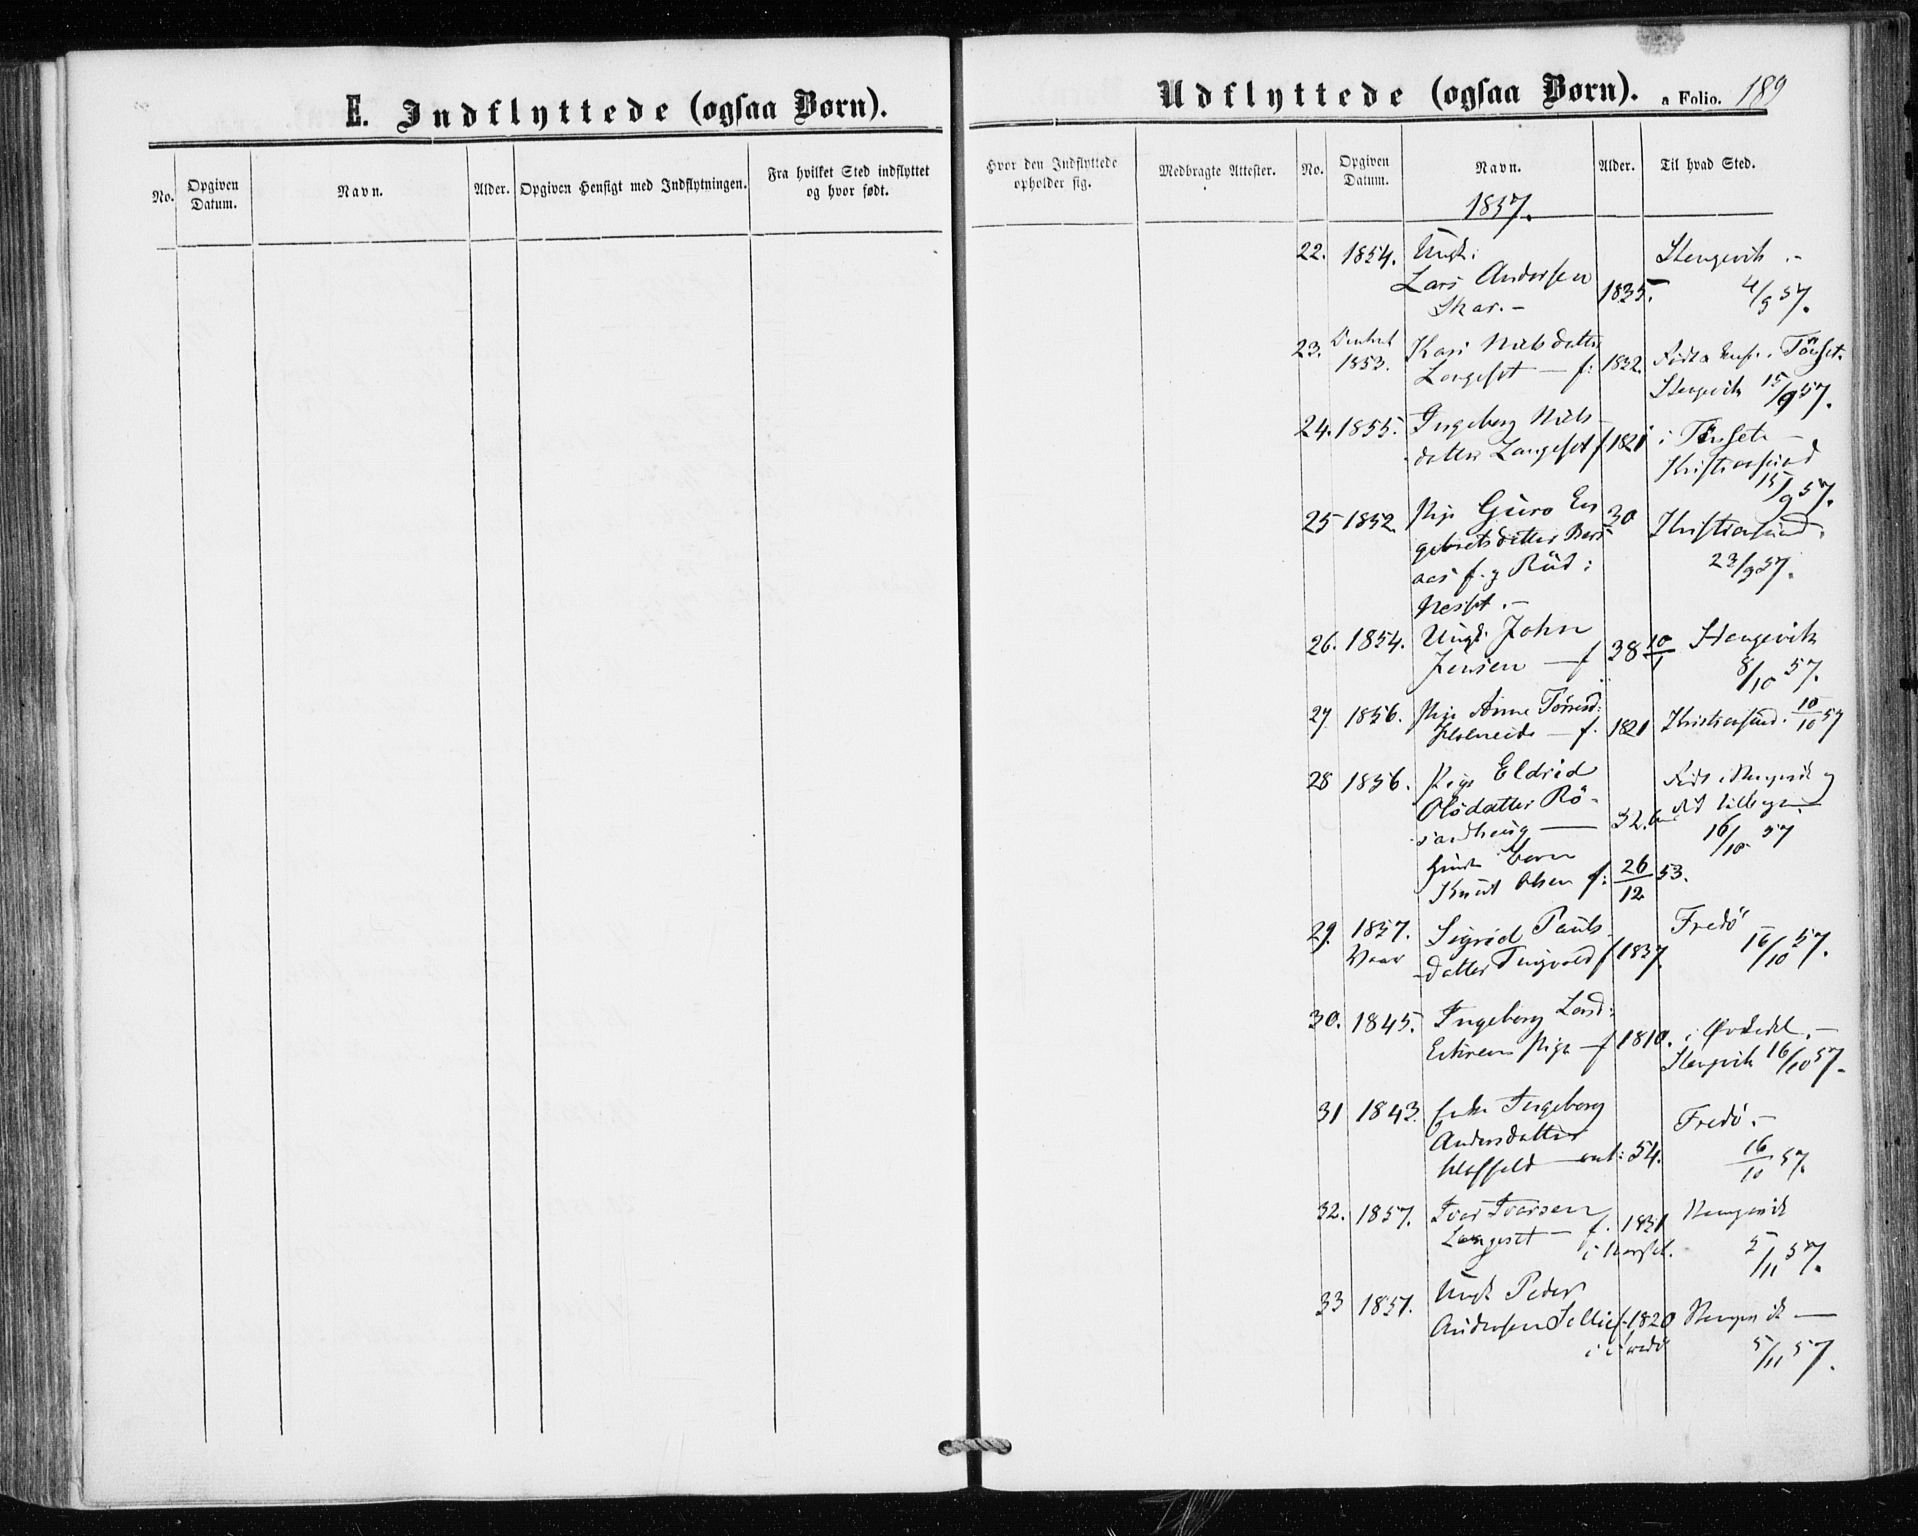 E. Indflyttede (ogsaa Børn).
Udflyttede (ogsaa Børn). a Folio. 189
No.
Opgiven Datum.
Navn.
Alder.
Opgiven Hensigt med Indflytningen.
Fra hvilket Sted indflyttet og hvor født.
Hvor den Indflyttede opholder sig.
Medbragte Attester.
No.
Opgiven Datum.
Navn.
Alder.
Til hvad Sted.
1857.
22. 1854. Ungk:
Lars Andersen 1835. 4/9 57.
Skar.-
23. 1853. Kari Nielsdatter
Langeset - f: 1832. 15/9 57.
24. 1855. Ingeborg Niels
datter Langeset f 1821 i
Christiansund
15/9 57.
25 1852. Pige Guro En 30 Christiansund.
gebretsdatter 23/9 57.
Nesset.-
26. 1854. Ungk. John
Jensen - f 38 10/1 Stangvik
8/10 57.
27 1856. Pige Anne
f. 1821 Christiansund. 10/10 57
28 1856. Pige Eldrid
Olsdatter Rö-
sandhaug - 32. 16/10 57
Barn
Knud Olsen f: 26/12 53.
29. 1857. Vaar Sigrid Pauls
datter Tingvold f 1837. Fredö 16/10 57.
30. 1845. Ingeborg Larsd:
Pige - f 1810. i
Stangvik 16/10 57.
31 1843. Enke Ingeborg
Andersdatter Fredö.-
54. 16/10 57.
32. 1857. Ivar Ivarsen
Langeset - f. 1831 Stangvik
5/11 57.
33 1857. Ungk Peder
Andersen f. 1820 Stangvik -
5/11 57.